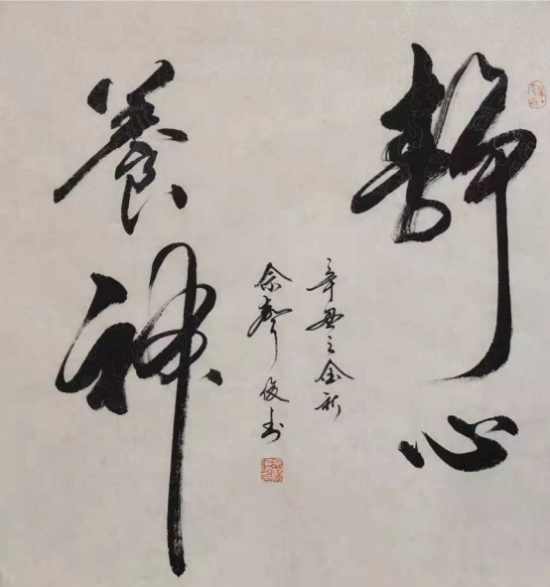 静心
養神
辛丑之金秋
余
俊书